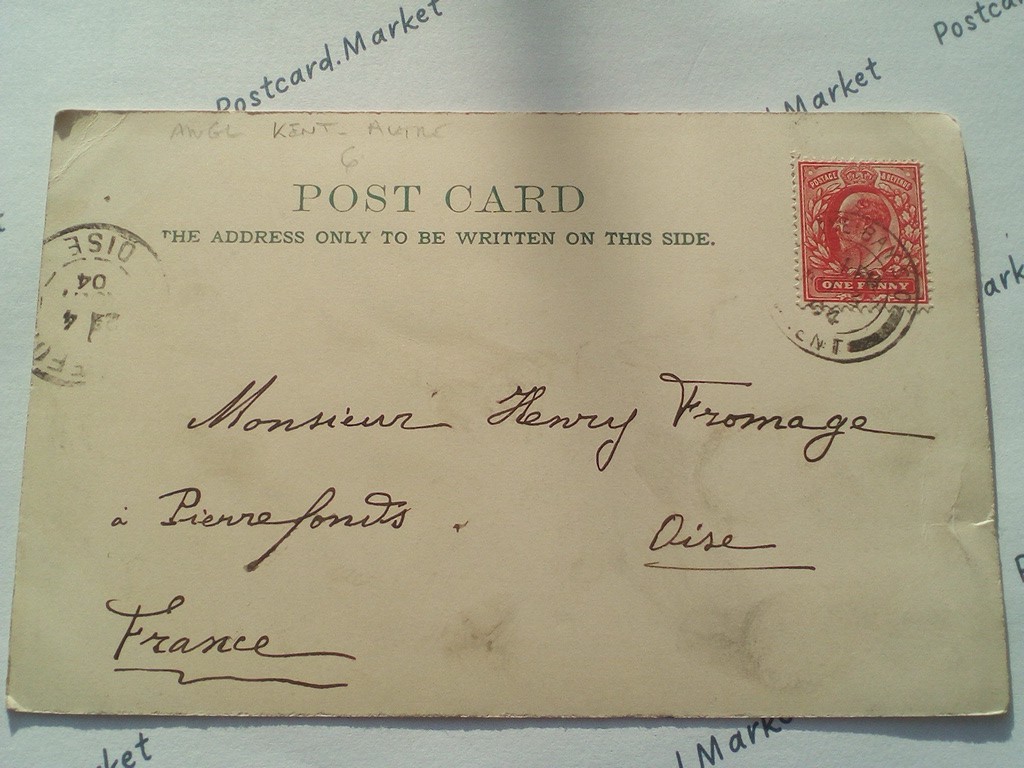 Postcard.Market
Market
Postca
ANGL KENT - AUTRE
6
POST CARD
THE ADDRESS ONLY TO BE WRITTEN ON THIS SIDE.
POSTAGE REVENUE
ONE PENNY
OISE
04
4
ENT
Monsieur Henry Fromage
à Pierrefonds
Oise
France
arket
ket
Market